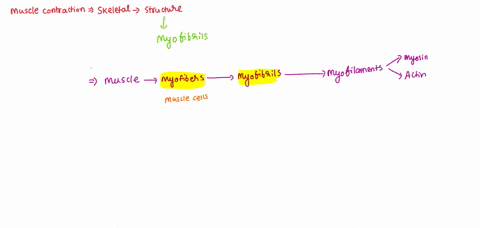 Muscle contraction ⇒ Skeletal → Structure
↓
Myofibrils
⇒ Muscle → Myofibers → Myofibrils → Myofilaments → Myosin
→ Actin
muscle cells